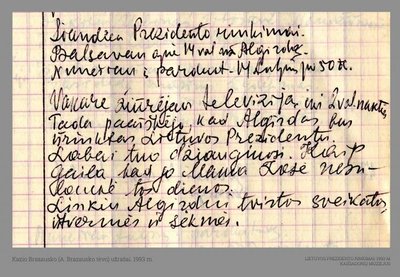 Šiandien Prezidento rinkimai.
Balsavau apie 14 val už Algirdą.
Numeriau į parduot. 14 Lutų po 50
Vakare žiūrėjau televiziją iki 2 val nakties
Tada paaiškėjo, kad Algirdas bus
išrinktas Lietuvos Prezidentu.
Labai tuo džiaugiuos. Tik
gaila kad jo Mama Zosė nesu-
laukė tos dienos.
Linkiu Algirdui tvirtos sveikatos,
ištvermės ir sėkmės.
Kazio Brazausko (A. Brazausko tėvo) užrašai. 1993 m.
LIETUVOS PREZIDENTO RINKIMAI 1993 M.
KAIŠIADORIŲ MUZIEJUS